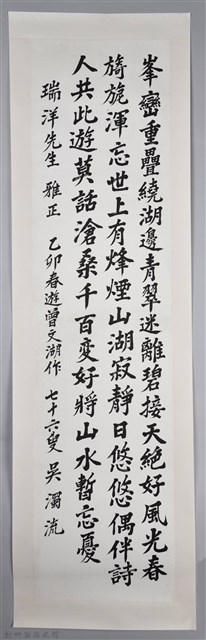 峯巒重疊繞湖邊青翠迷離碧接天絕好風光春
旖旎渾忘世上有烽煙山湖寂靜日悠悠偶伴詩
人共此遊莫話滄桑千百变好將山水暫忘憂
瑞洋先生 雅正 乙卯春遊曾文湖作 七十六叟 吳濁流